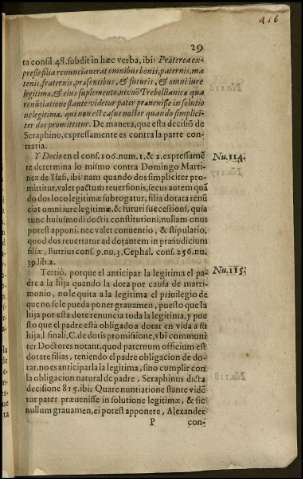 416
29
ta consil. 48. subdit in hæc verba, ibi: Præterea ex-
presse filia renunciauerat omnibus bonis, paternis, ma
ternis, fraternis, præsentibus, & futuris, & omni iure
legitimæ, & eius supplemento, etenim Trebellianica qua
renūtiatione stante videtur pater præuenisse in solutio
ne legitimæ, quia non est casus noster quando simplici-
ter dos promitteretur. De manera, que esta decisiō de
Seraphino, expressamente es contra la parte con-
traria.
Y Decio en el cons. 106. num. 1. & 2. expressamē
te determina lo mismo contra Domingo Marti-
nez de Isasi, ibi: nam quando dos simpliciter pro-
mittitur, valet pactum reuersionis, secus autem quā
do dos loco legitimæ subrogatur, filia dotata renū
ciat omni iure legitimæ, & futuri successioni, quia
tunc huiusmodi dos tri constitutioni, nullum onus
potest apponi, nec valet conuentio, & stipulatio,
quod dos reuertatur ad dotantem in præiudicium
filiæ, Burrius cons. 9. nu. 3. Cephal. cons. 256. nu.
39. lib. 2.
Nu. 114.
Tertiò, porque el anticipar la legitima el pa-
dre a la hija quando la dota por causa de matri-
monio, no le quita a la legitima el priuilegio de
que no se le pueda poner grauamen, puesto que la
hija por esta dote renuncia toda la legitima, y pue
sto que el padre està obligado a dotar en vida a su
hija, l. finali, C. de dotis promissione, vbi communi
ter Doctores notant, quod paternum officium est
dotare filias, teniendo el padre obligacion de do-
tar, no es anticiparla la legitima, sino cumplir con
la obligacion natural de padre, Seraphinus dicta
decisione 815. ibi: Quare nuntiatione stante vidē
tur pater præuenisse in solutione legitimæ, & sic
nullum grauamen, ei potest apponere, Alexander
Nu. 115.
P
con-